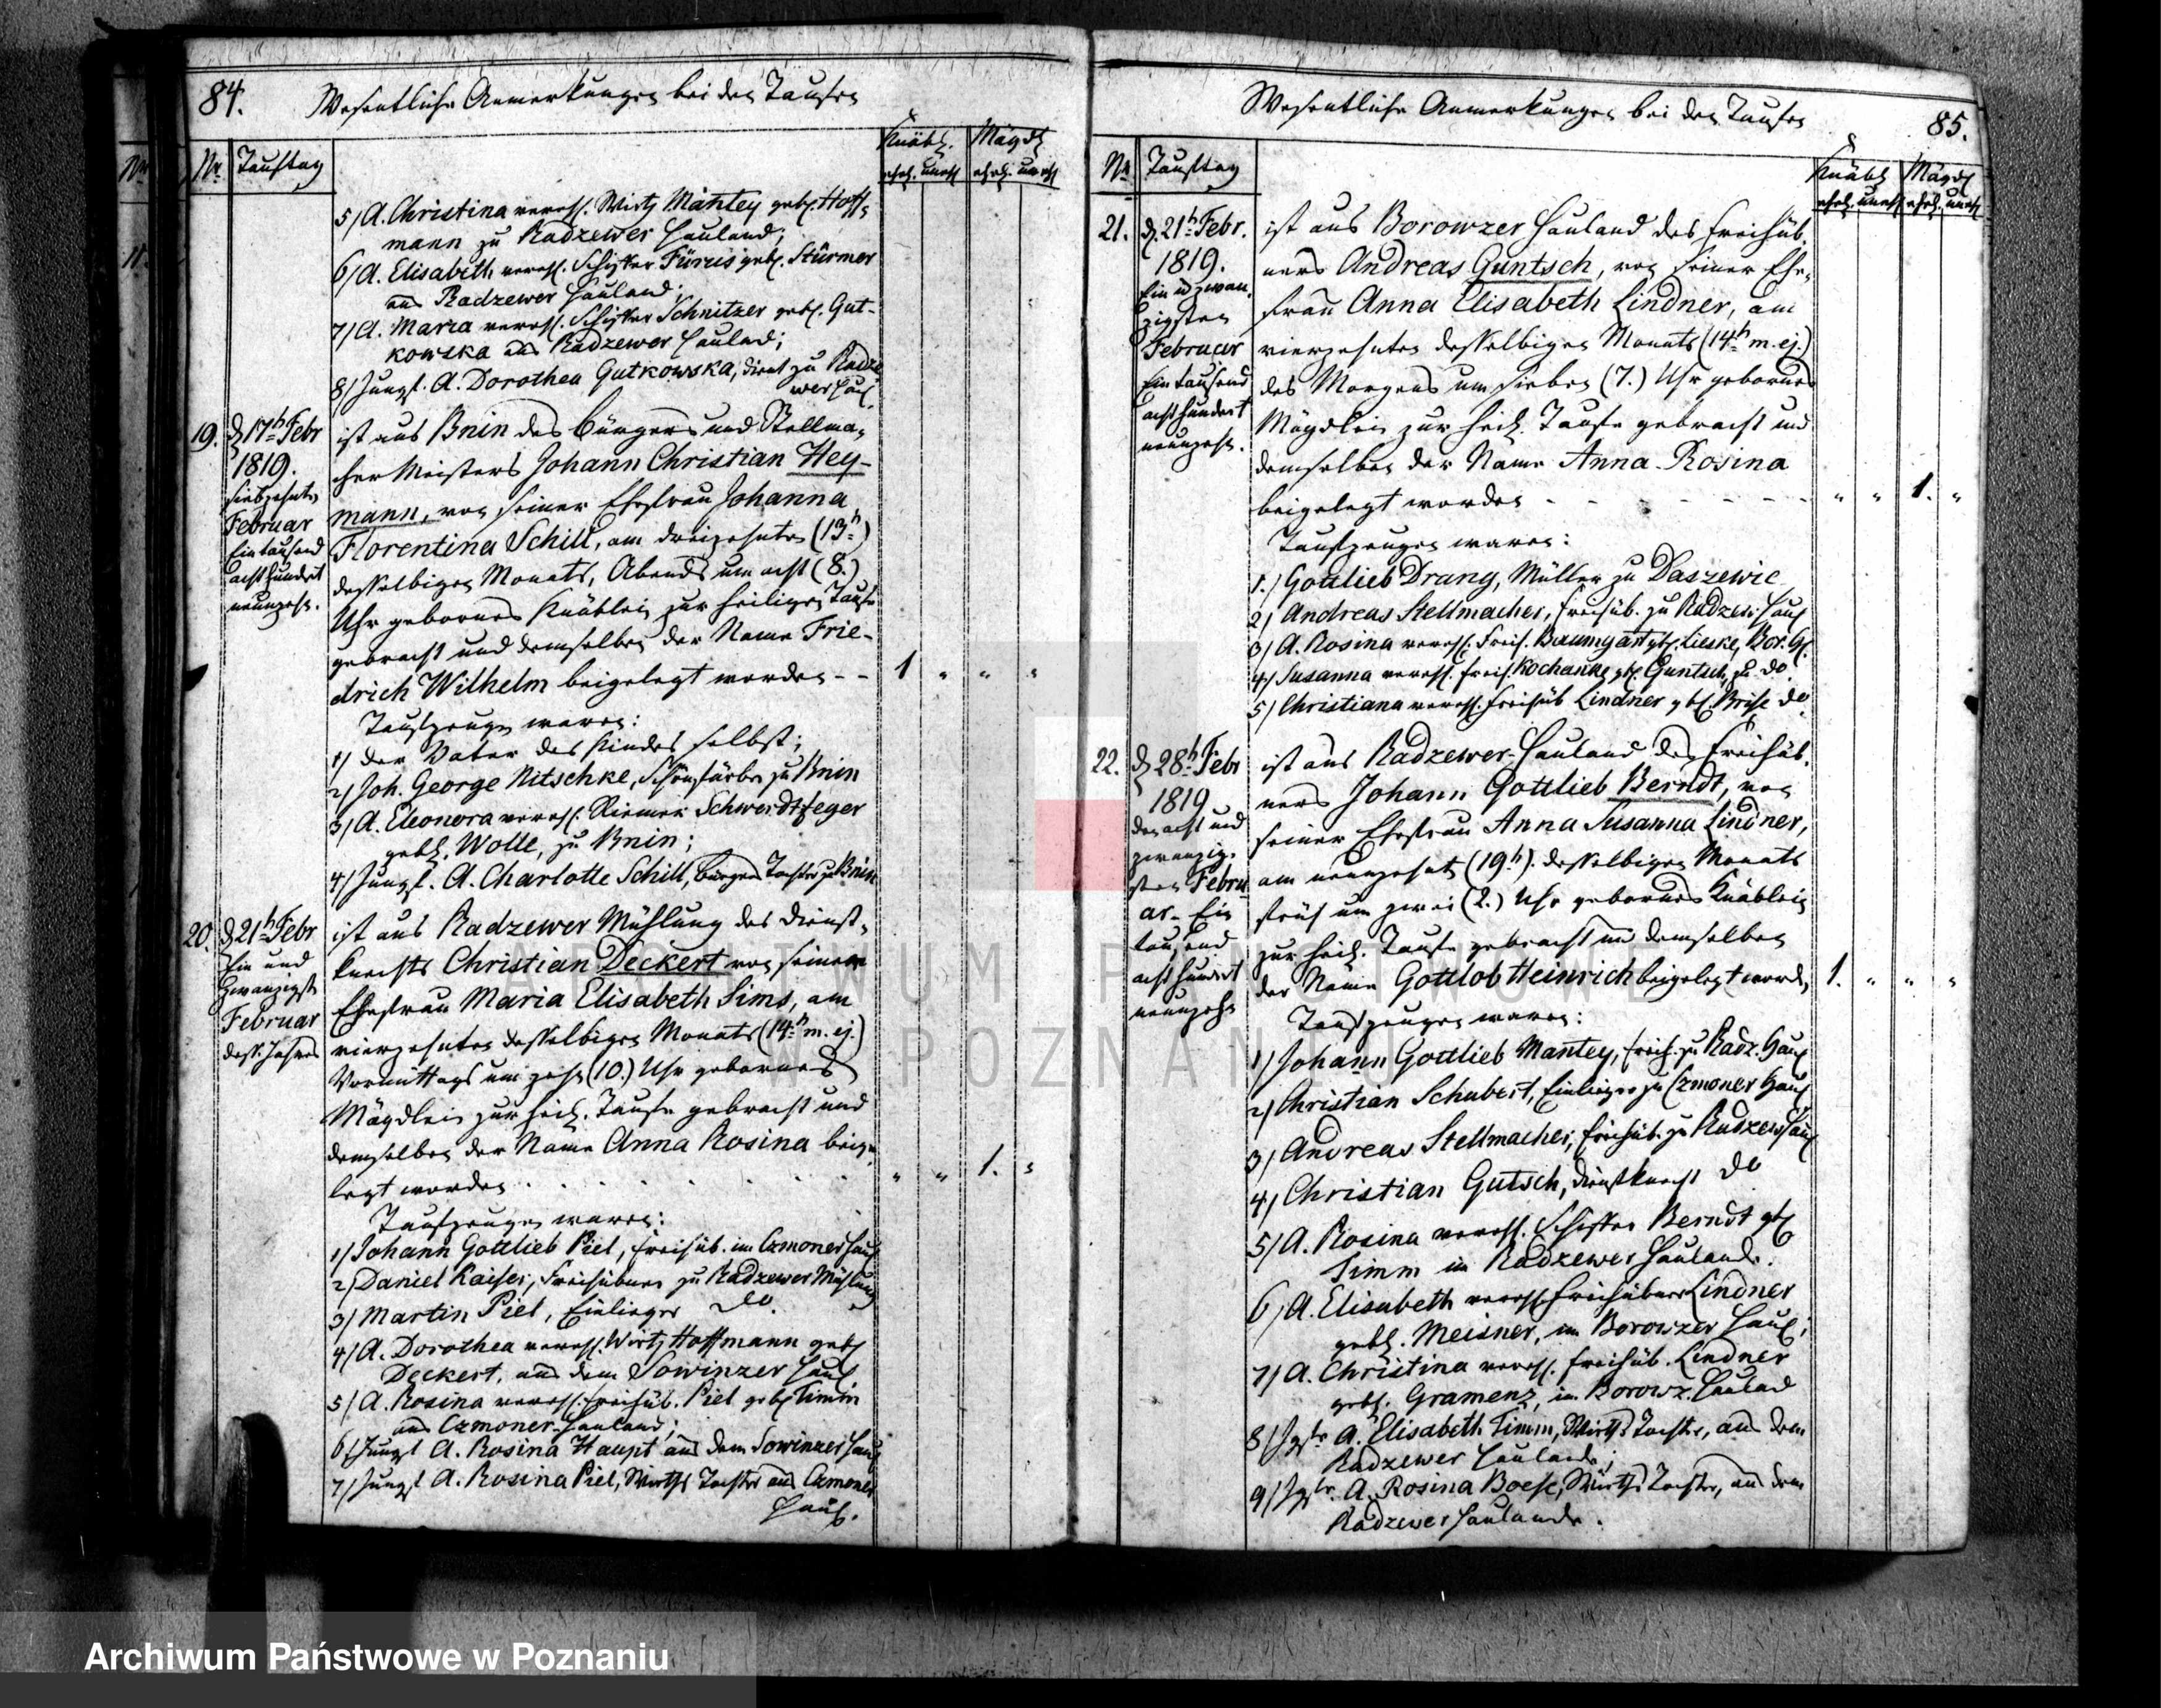 84.
Wesentliche Anmerkungen bei den Taufen
Nr. Tauftag
Knäbl. Mägdl
ehel. unehl ehel. unehl
5/ A. Christina verehl. Wirth Mantey gebl. Hoff-
mann zu Radzewer Hauland;
6/ A. Elisabeth verehl. Fürus gebl. Stürmer
aus Radzewer Hauland;
7/ A. Maria verehl. Schnitzer gebl. Gut-
kowska aus Radzewer Hauland;
8/ Jungf. A. Dorothea Gutkowska, dient zu Radze
wer Haul.
19. d 17t Febr
1819.
siebzehnten
Februar
Ein tausend
acht hundert
neunzehn.
ist aus Bnin des Bürgers und Stellma-
cher Meisters Johann Christian Hey-
mann, von seiner Ehefrau Johanna
Florentina Schill, am dreizehnten (13t)
desselbigen Monats, Abends um acht (8.)
Uhr gebornes Knäblein zur heiligen Taufe
gebracht und demselben der Name Frie-
drich Wilhelm beigelegt worden - -
1 " " "
Taufzeugen waren:
1/ der Vater des Kindes selbst;
2/ Joh. George Nitschke, Schönfärber zu Bnin
3/ A. Eleonora verehl. Riemer Schwerdtfeger
gebl. Wolle, zu Bnin;
4/ Jungf. A. Charlotte Schill, Bürgers Tochter zu Bnin
20. d 21t Febr
Ein und
zwanzigst
Februar
dess. Jahres
ist aus Radzewer Mühlung des Dienst-
knechts Christian Deckert von seiner
Ehefrau Maria Elisabeth Sims, am
vierzehnten desselbigen Monats (14t m. ej.)
Vormittags um zehn (10.) Uhr gebornes
Mägdlein zur heil. Taufe gebracht und
demselben der Name Anna Rosina beige-
legt worden . . . . . .
" " 1. "
Taufzeugen waren:
1/ Johann Gottlieb Piel, Freihüb. im Czmoner Haul
2/ Daniel Kaiser, Freihübner zu Radzewer Mühlung
3/ Martin Piel, Einlieger do.
4/ A. Dorothea verehl. Wirth Hoffmann gebl
Deckert, aus dem Sowinzer Haul
5/ A. Rosina verehl. Freihüb. Piel gebl Timm
aus Czmoner Hauland;
6/ Jungf A. Rosina Haupt aus dem Sowinzer Haul
7/ Jungf A. Rosina Piel, Wirths Tochter aus Czmoner
Haul.
Wesentliche Anmerkungen bei den Taufen
85.
Nr Tauftag
Knäbl Mägdl
ehel. unehl ehel. unehl
21. d. 21t Febr.
1819.
Ein u zwan-
zigsten
Februar
Ein tausend
acht hundert
neunzehn.
ist aus Borowzer Hauland des Freihüb-
ners Andreas Guntsch, von seiner Ehe-
frau Anna Elisabeth Lindner, am
vierzehnten desselbigen Monats (14t m. ej.)
des Morgens um sieben (7.) Uhr gebornes
Mägdlein zur heil. Taufe gebracht und
demselben der Name Anna Rosina
beigelegt worden - - - - - -
" " 1. "
Taufzeugen waren:
1/ Gottlieb Drang, Müller zu Daszewic
2/ Andreas Stellmacher, Freihüb. zu Radzew. Haul
3/ A. Rosina verehl. Freih. Baumgart gbl. Lieske, Bor. H.
4/ Susanna verehl. Freih. Kochanke gbl. Guntsch, zu do.
5/ Christiana verehl. Freihüb Lindner gbl. Brise do
22. d 28t Febr
1819
den acht und
zwanzig-
sten Febru
ar. Ein
tausend
acht hundert
neunzehn
ist aus Radzewer Hauland des Freihüb-
ners Johann Gottlieb Berndt, von
seiner Ehefrau Anna Susanna Lindner,
am neunzehnt (19t) desselbigen Monats
früh um zwei (2.) Uhr gebornes Knäblein
zur heil. Taufe gebracht und demselben
der Name Gottlob Heinrich beigelegt word,
1. " " "
Taufzeugen waren:
1/ Johann Gottlieb Mantey, Freih. zu Radz. Haul
2/ Christian Schubert, Einlieger zu Czmoner Haul
3/ Andreas Stellmacher, Freihüb. zu Radzew Haul
4/ Christian Gutsch, Dienstknecht do
5/ A. Rosina verehl. Berndt gbl
Timm im Radzewer Haulande.
6/ A. Elisabeth verehl. Freihübner Lindner
gebl. Meisner, im Borowzer Haul;
7/ A. Christina verehl. Freihüb. Lindner
gebl. Gramenz, im Borowz. Hauland
8/ Jgfr. A. Elisabeth Timm, Wirths Tochter, aus dem
Radzewer Haulande;
9/ Jgfr. A. Rosina Boese, Wirths Tochter, aus dem
Radzewer Haulande.
ARCHIWUM PAŃSTWOWE
W POZNANIU
Archiwum Państwowe w Poznaniu